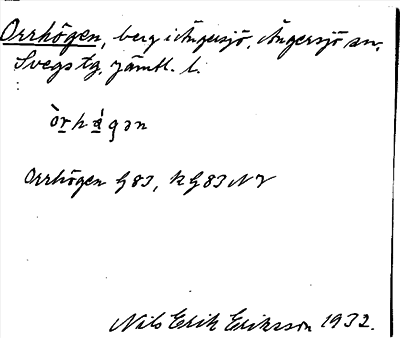 Orrhögen, berg i Ängersjö, Ängersjö sn,
Svegs tg, Jämtl. l.
Orrhögen G 83, k G 83 NV
Nils Erik Eriksson 1932.